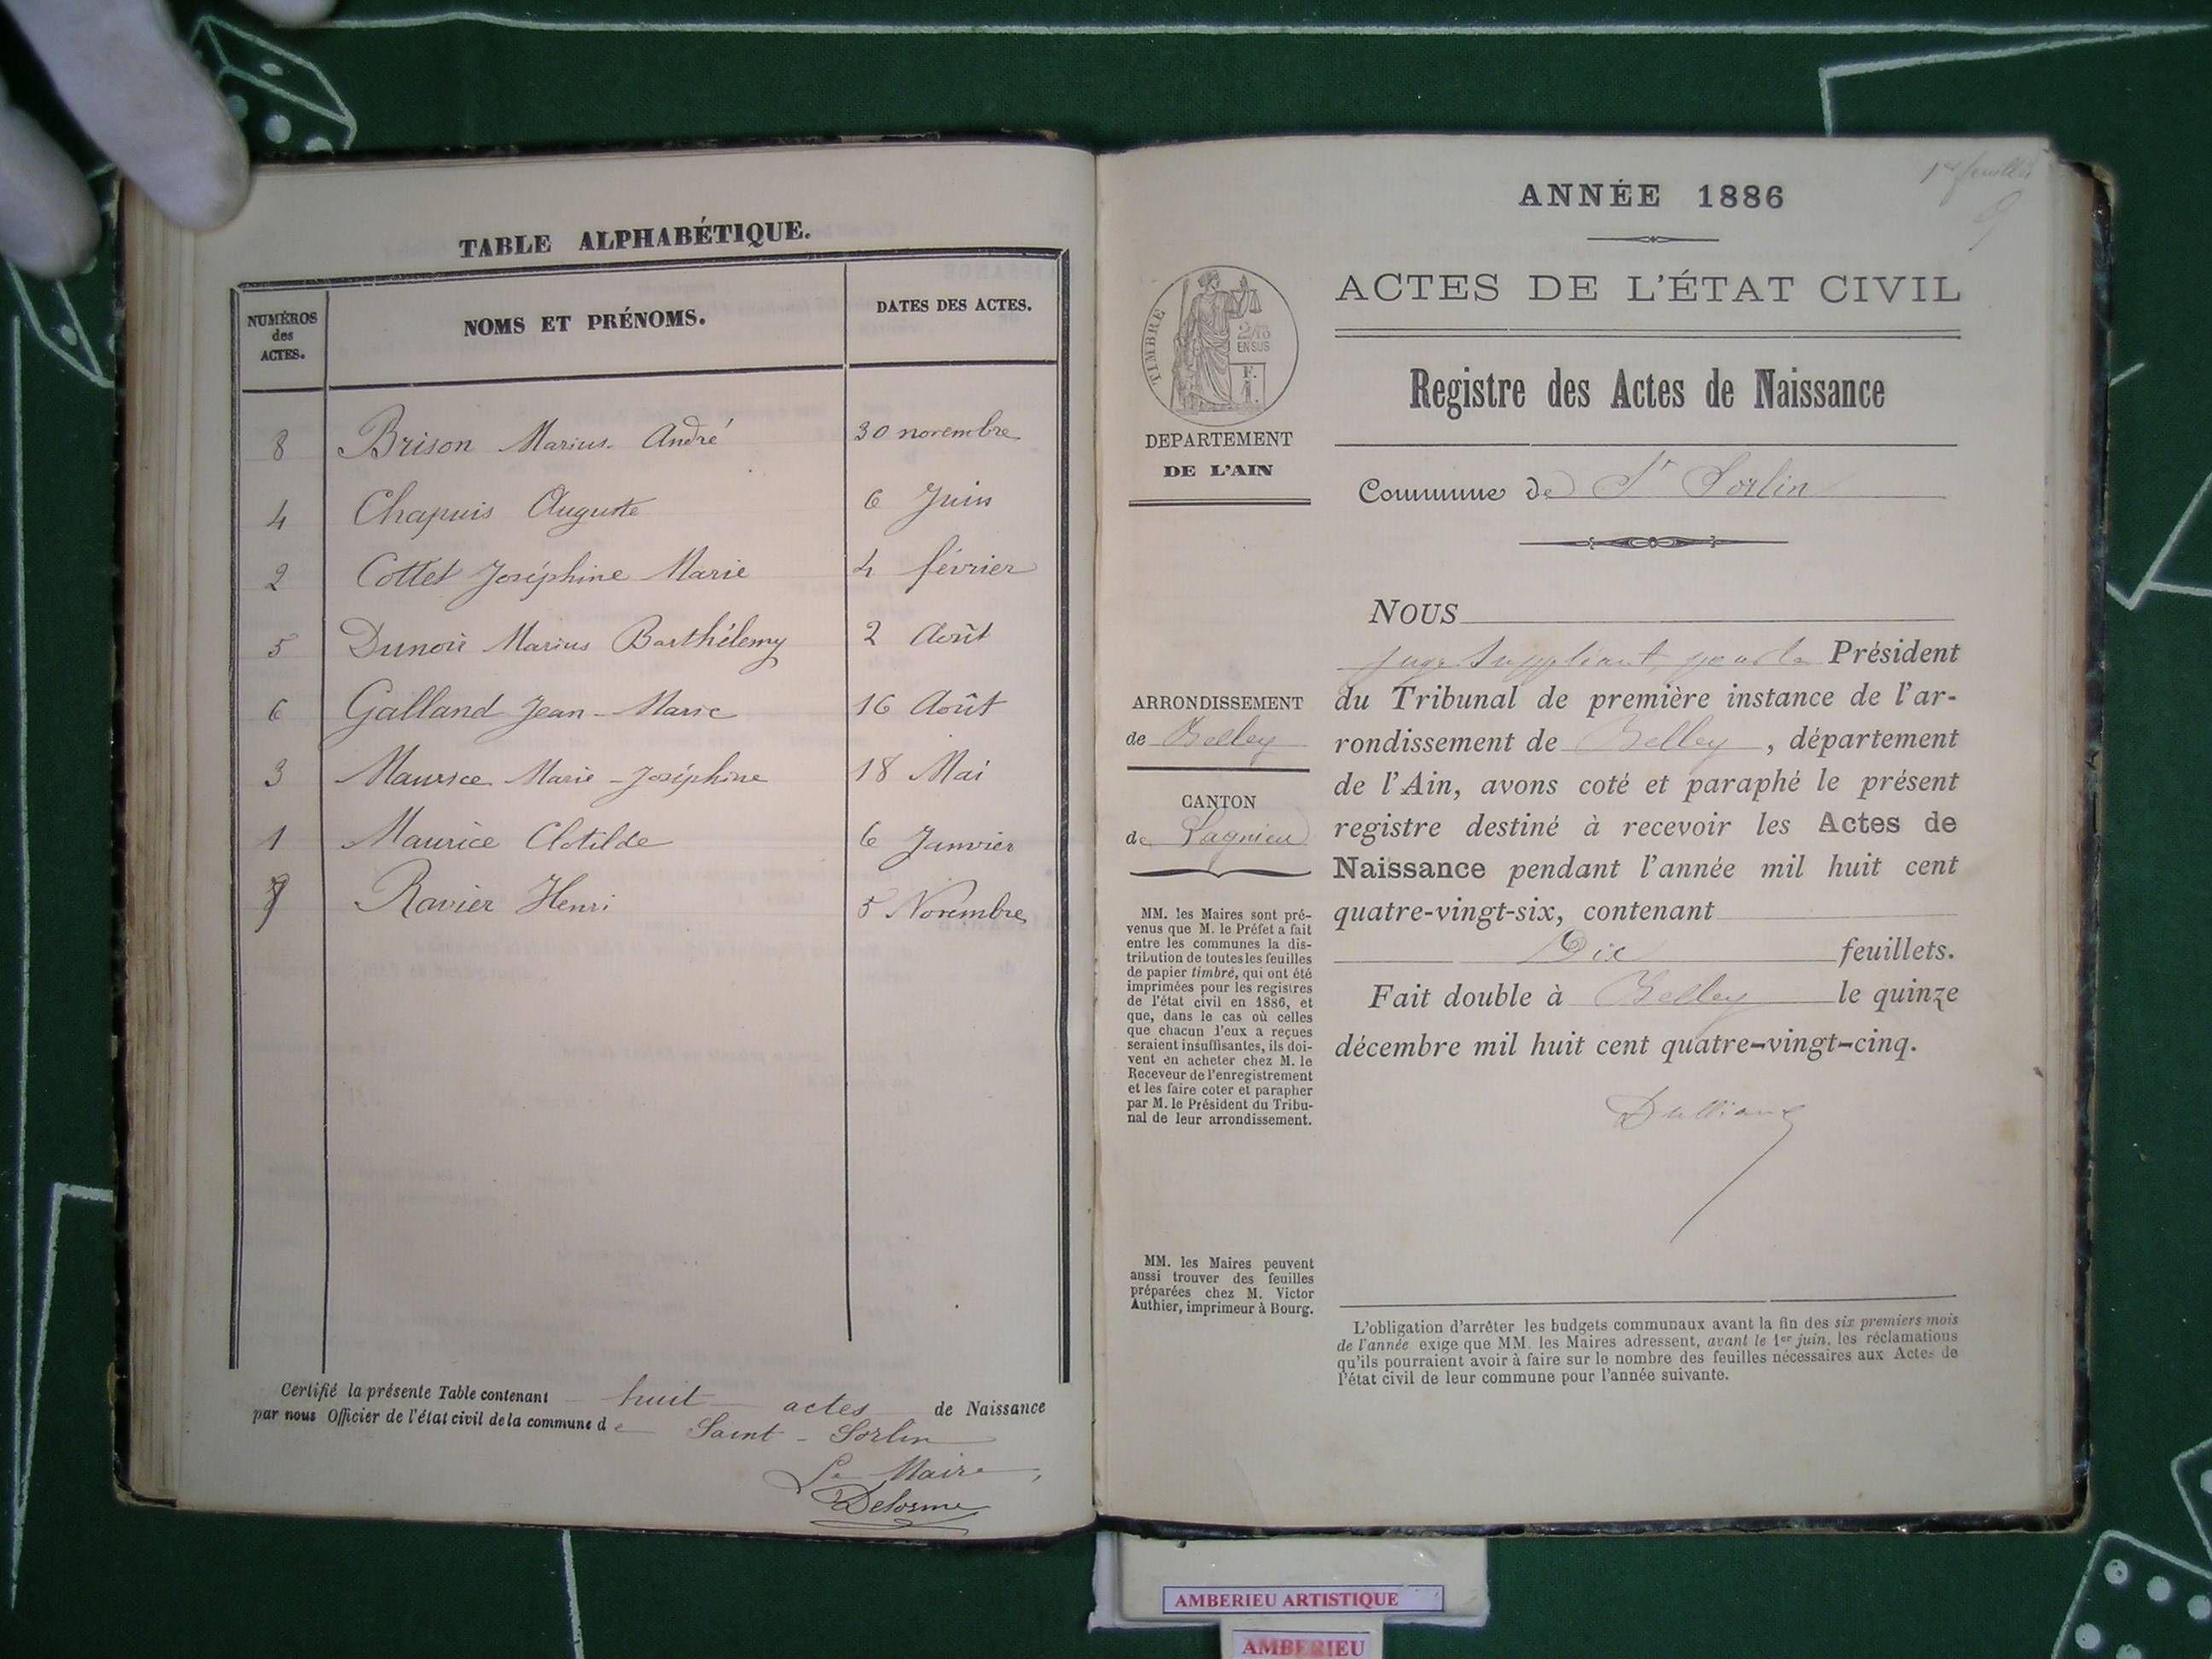 TABLE ALPHABÉTIQUE.
NUMÉROS
des
ACTES.
NOMS ET PRÉNOMS.
DATES DES ACTES.
8 Brison Marius André 30 novembre
4 Chapuis Auguste 6 Juin
2 Cottet Joséphine Marie 4 février
5 Dunoir Marius Barthélemy 2 Août
6 Galland Jean-Marie 16 Août
3 Maurice Marie-Joséphine 18 Mai
1 Maurice Clotilde 6 Janvier
7 Ravier Henri 5 Novembre
Certifié la présente Table contenant huit actes de Naissance
par nous Officier de l'état civil de la commune de Saint-Sorlin
Le Maire,
Delorme
1er feuillet
ANNÉE 1886
ACTES DE L'ÉTAT CIVIL
Registre des Actes de Naissance
Commune de St Sorlin
TIMBRE
2/10
EN SUS
F.
1.
DEPARTEMENT
DE L'AIN
ARRONDISSEMENT
de Belley
CANTON
de Lagnieu
MM. les Maires sont pré-
venus que M. le Préfet a fait
entre les communes la dis-
tribution de toutes les feuilles
de papier timbré, qui ont été
imprimées pour les registres
de l'état civil en 1886, et
que, dans le cas où celles
que chacun d'eux a reçues
seraient insuffisantes, ils doi-
vent en acheter chez M. le
Receveur de l'enregistrement
et les faire coter et parapher
par M. le Président du Tribu-
nal de leur arrondissement.
MM. les Maires peuvent
aussi trouver des feuilles
préparées chez M. Victor
Authier, imprimeur à Bourg.
NOUS
juge suppléant, pour le Président
du Tribunal de première instance de l'ar-
rondissement de Belley, département
de l'Ain, avons coté et paraphé le présent
registre destiné à recevoir les Actes de
Naissance pendant l'année mil huit cent
quatre-vingt-six, contenant
Dix feuillets.
Fait double à Belley le quinze
décembre mil huit cent quatre-vingt-cinq.
L'obligation d'arrêter les budgets communaux avant la fin des six premiers mois
de l'année exige que MM. les Maires adressent, avant le 1er juin, les réclamations
qu'ils pourraient avoir à faire sur le nombre des feuilles nécessaires aux Actes de
l'état civil de leur commune pour l'année suivante.
AMBERIEU ARTISTIQUE
AMBERIEU